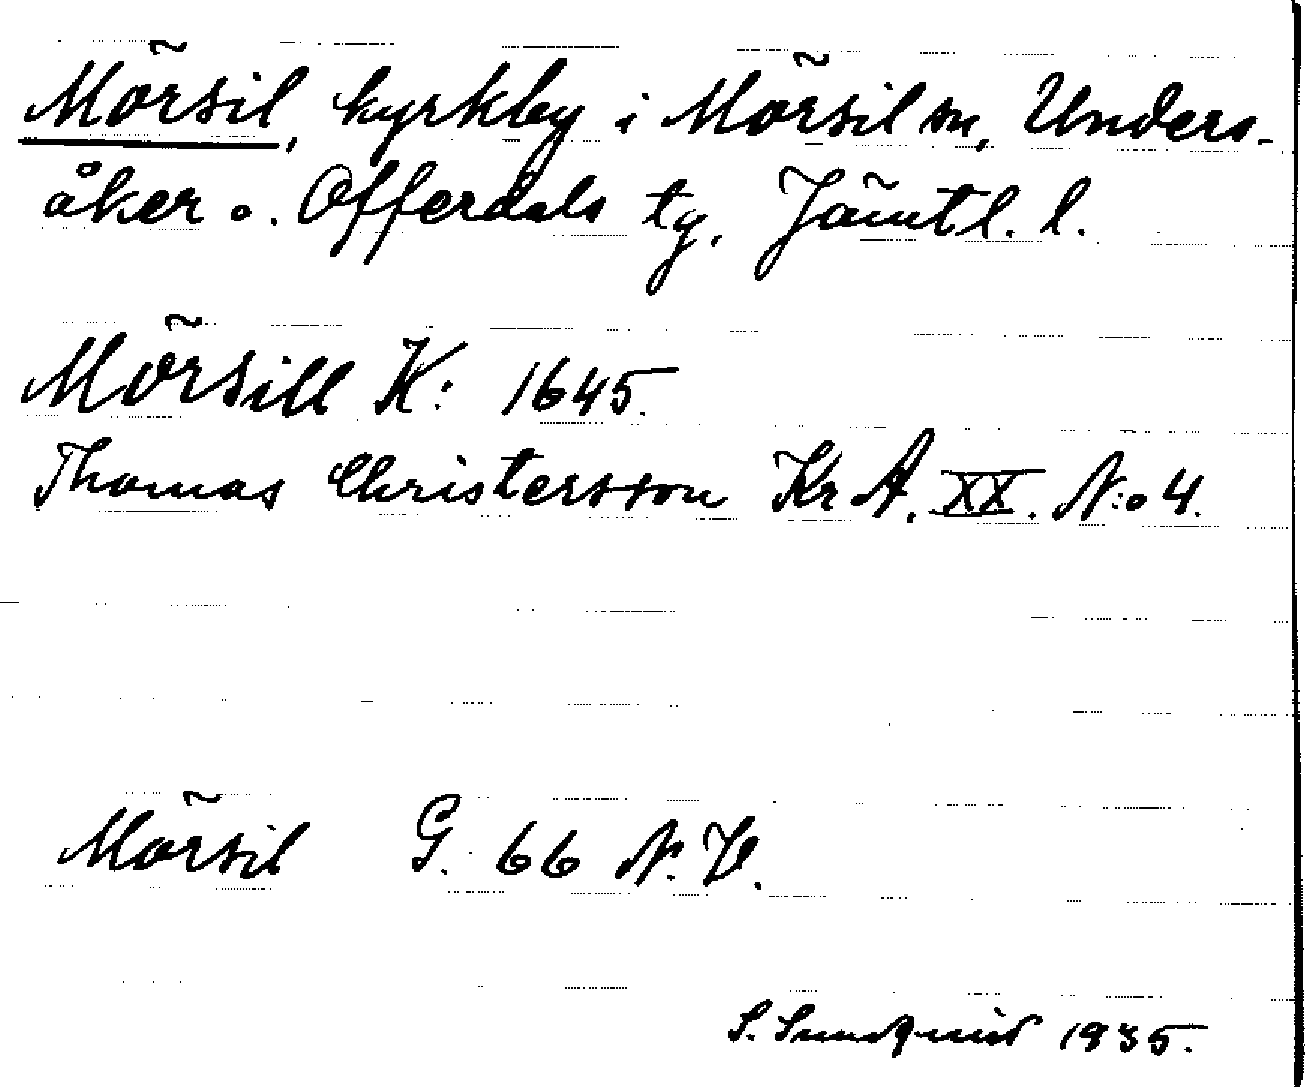 Mörsil, kyrkby i Mörsil sn, Unders-
åker o. Offerdals tg, Jämtl. l.
Mörsill K: 1645.
Thomas Christersson Kr A. XX. N:o 4.
Mörsil G. 66 N. V.
S. Sundqvist 1935.